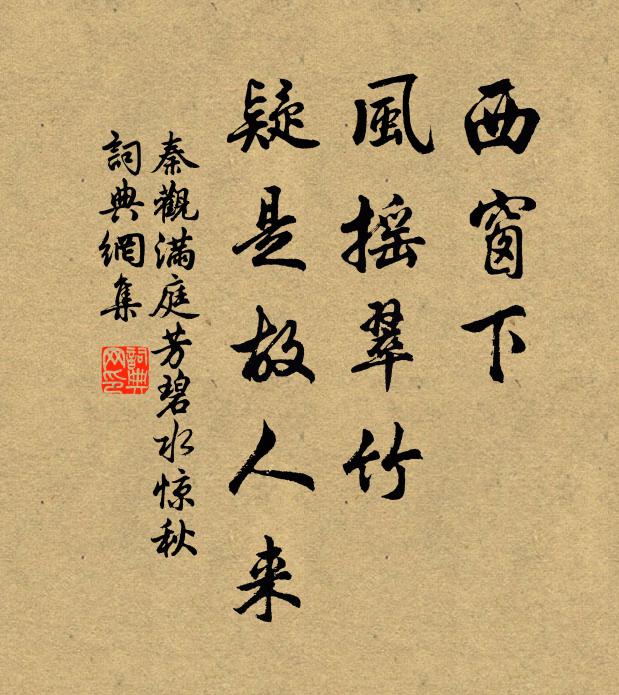 西窗下
風摇翠竹
疑是故人来
秦觀满庭芳碧水惊秋
詞典網集
詞典网印